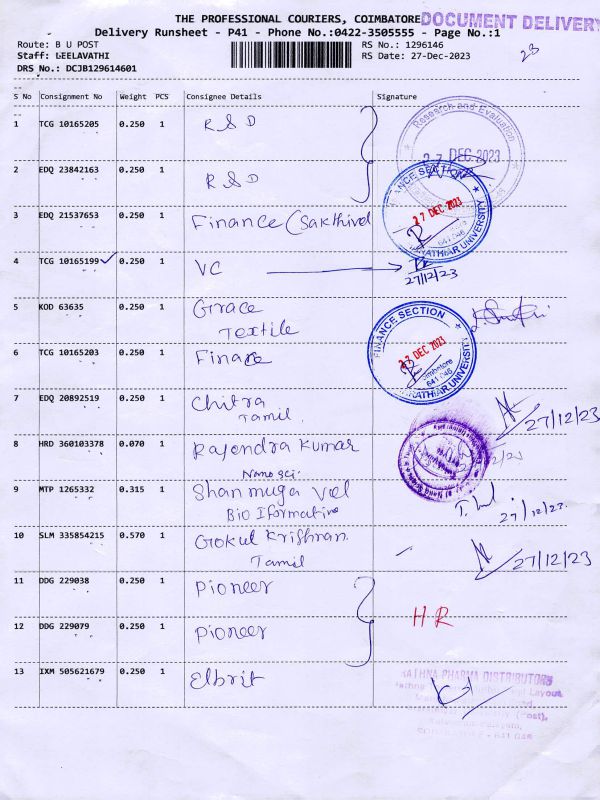 THE PROFESSIONAL COURIERS, COIMBATORE DOCUMENT DELIVERY
Delivery Runsheet - P41 - Phone No.:0422-3505555 - Page No.:1
Route: B U POST RS No.: 1296146
Staff: LEELAVATHI RS Date: 27-Dec-2023
28
DRS No.: DCJB129614601
S No Consignment No Weight PCS Consignee Details Signature
1 TCG 10165205 0.250 1 R & D
Research and Evaluation
27 DEC 2023
2 EDQ 23842163 0.250 1 R & D
3 EDQ 21537653 0.250 1 Finance (Sakthivel
27 DEC 2023
641 046
4 TCG 10165199 0.250 1 VC
27/12/23
5 KOD 63635 0.250 1 Grace
Textile
FINANCE SECTION
6 TCG 10165203 0.250 1 Finance
27 DEC 2023
Coimbatore
641 046
7 EDQ 20892519 0.250 1 Chitra
Tamil
27/12/23
8 HRD 360103378 0.070 1 Rajendra Kumar
Nano sci.
9 MTP 1265332 0.315 1 Shanmuga Vel
Bio Iformative
27/12/23
10 SLM 335854215 0.570 1 Gokul Krishnan
Tamil
27/12/23
11 DDG 229038 0.250 1 Pioneer
HR
12 DDG 229079 0.250 1 Pioneer
13 IXM 505621679 0.250 1 Elbrit
RATHNA PHARMA DISTRIBUTORS